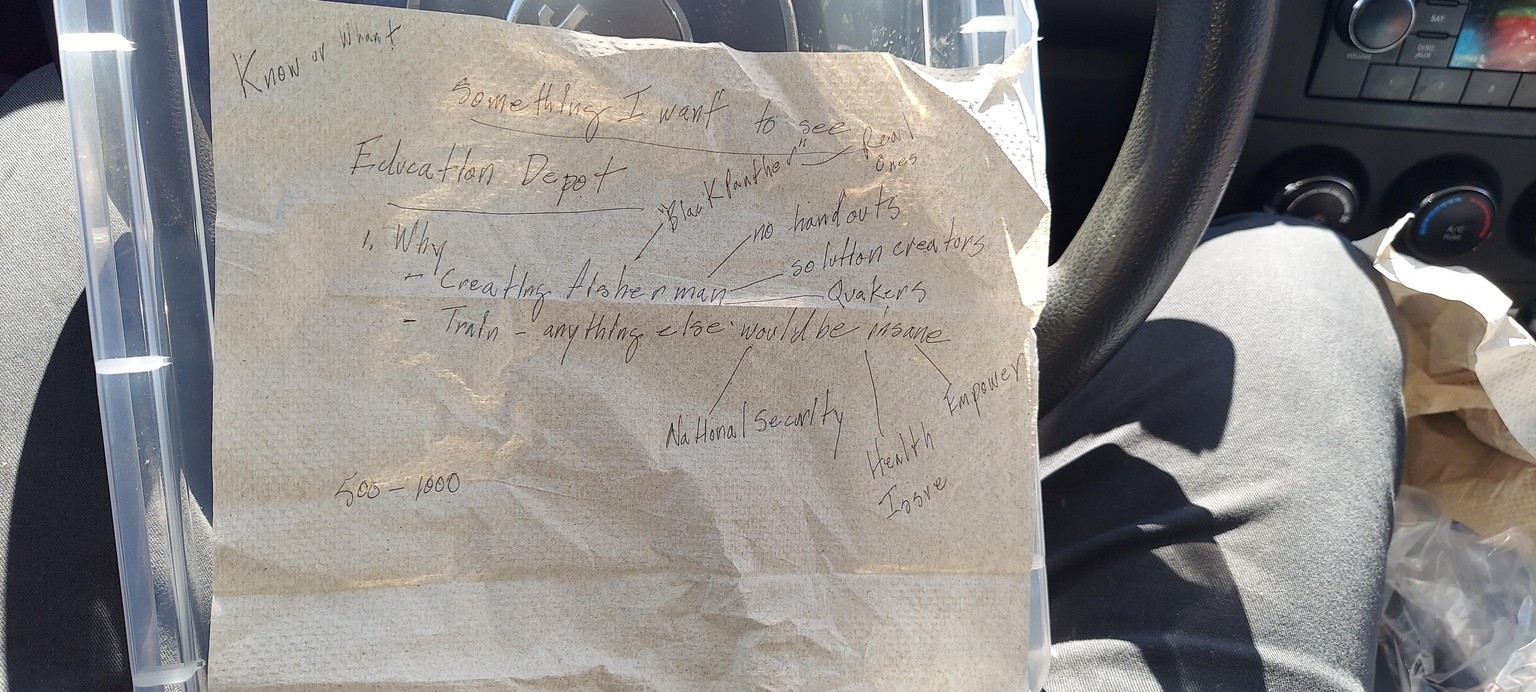 Know or Whant
Something I want to see
Education Depot
"Black Panther"
Real
Ones
1. Why
no handouts
solution creators
- Creating fisherman
Quakers
- Train - anything else would be insane
National Security
Health
Issue
Empower
500 - 1000
VOLUME
SAT
DISC
AUX
1
2
3
A/C